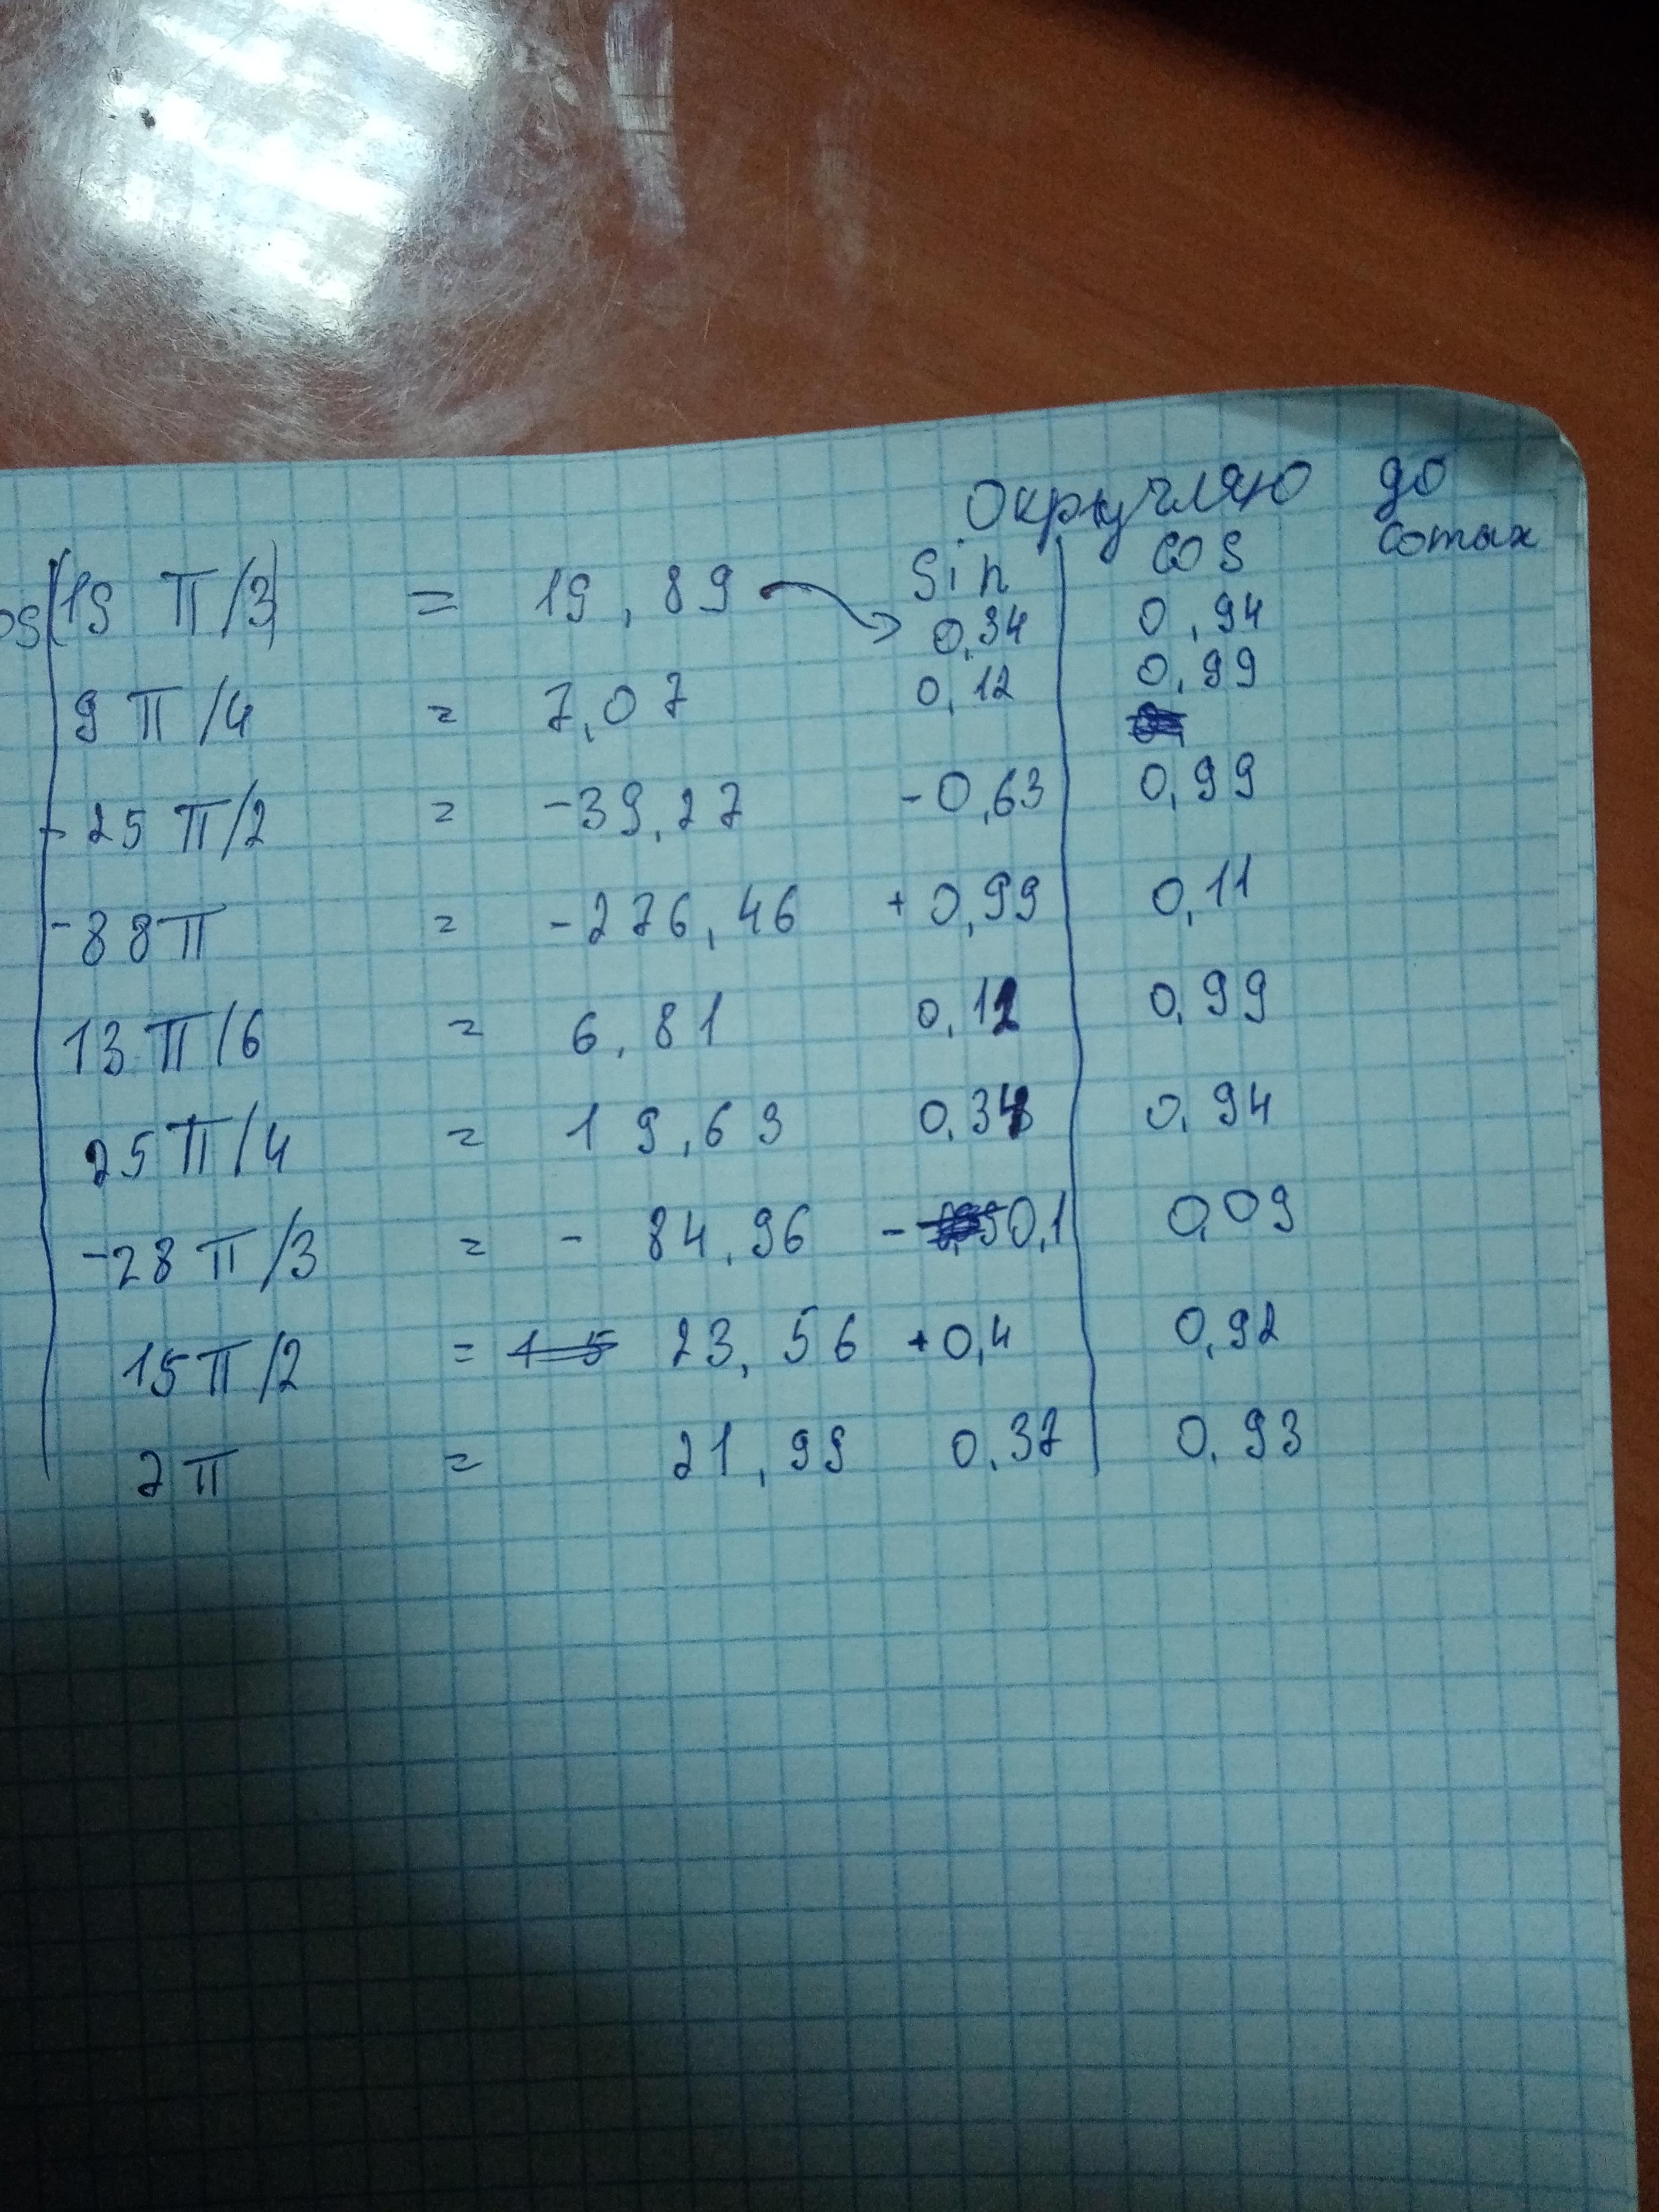 Округляю до
сотых
sin cos
os(19 π/3) = 19,89 0,34 0,94
9 π/4 = 7,07 0,12 0,99
-25 π/2 = -39,27 -0,63 0,99
-88π = -276,46 +0,99 0,11
13 π/6 = 6,81 0,12 0,99
25 π/4 = 19,63 0,34 0,94
-28 π/3 = - 84,96 - 0,1 0,09
15π/2 = 23,56 +0,4 0,92
7π = 21,99 0,37 0,93